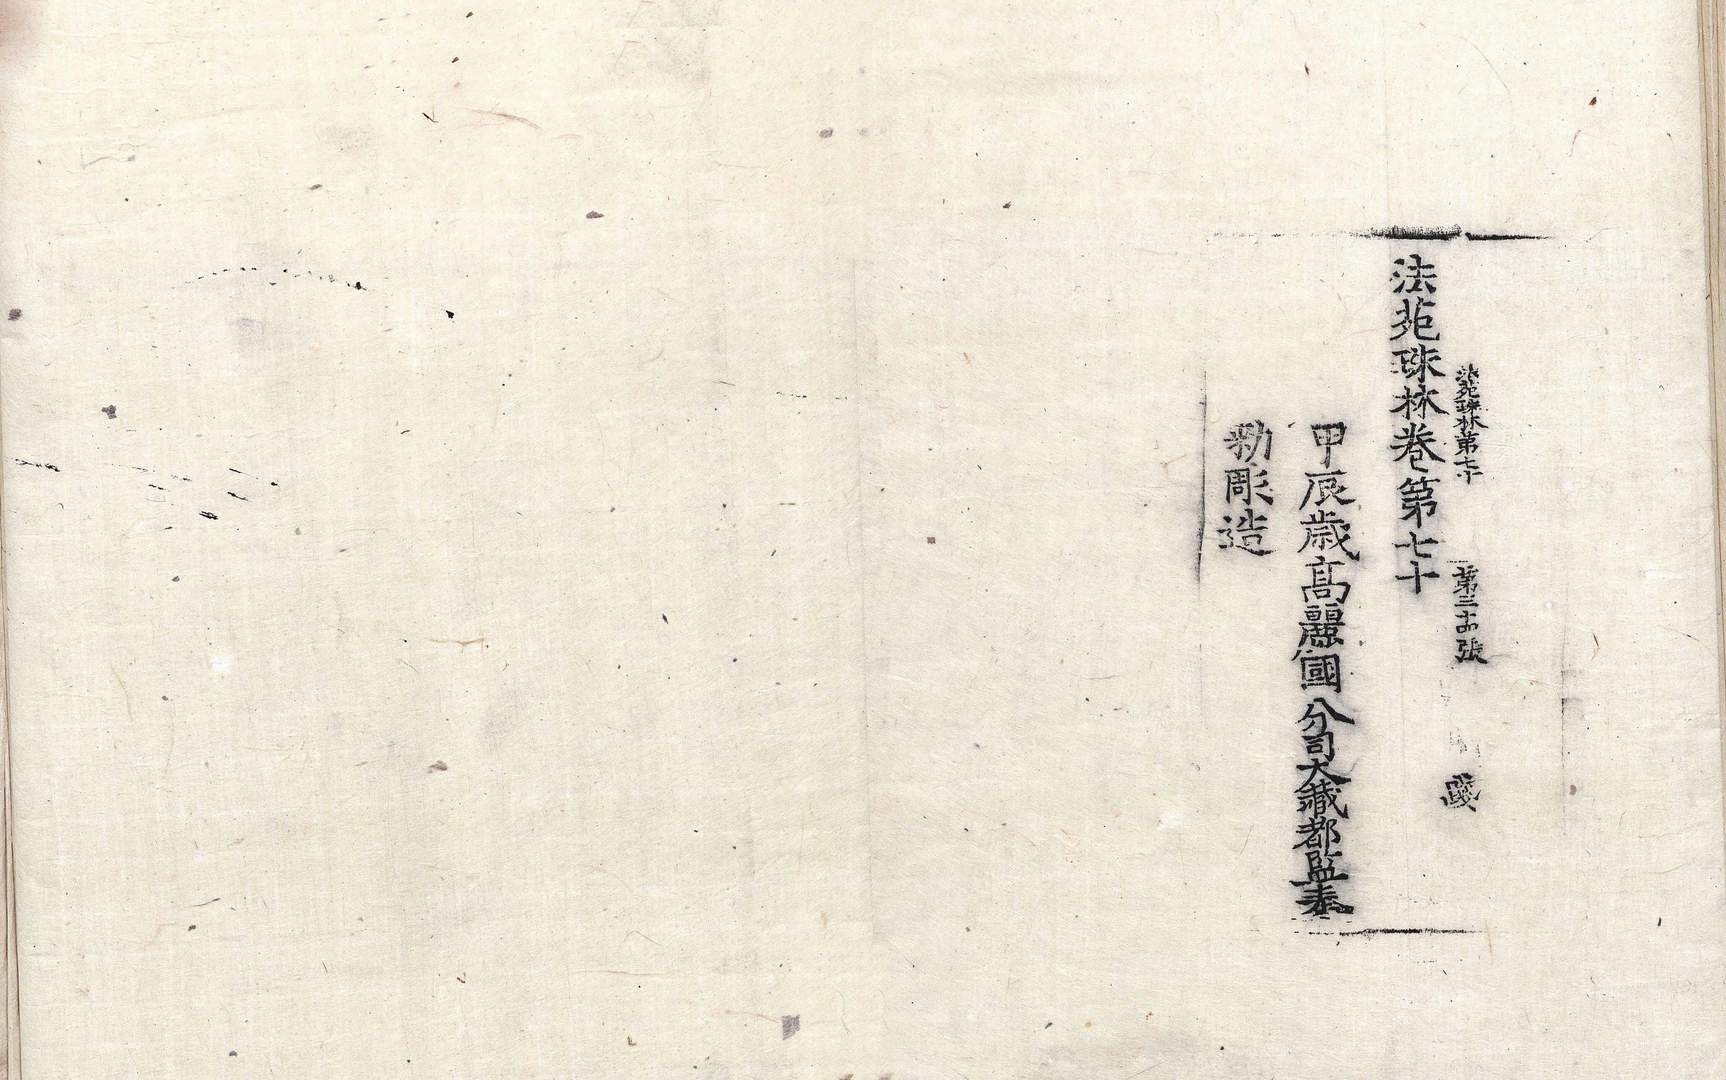 法苑珠林第七十　第三十四張
法苑珠林卷第七十
甲辰歳高麗國分司大藏都監奉
勑彫造